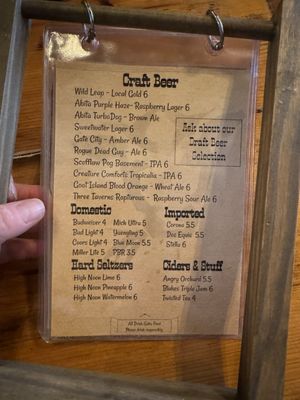 Craft Beer
Wild Leap - Local Gold 6
Abita Purple Haze- Raspberry Lager 6
Abita TurboDog - Brown Ale
Sweetwater Lager 6
Gate City - Amber Ale 6
Rogue Dead Guy - Ale 6
Scofflaw Pog Basement - IPA 6
Creature Comforts Tropicalia - IPA 6
Goat Island Blood Orange - Wheat Ale 6
Three Taverns Rapturous - Raspberry Sour Ale 6
Ask about our
Craft Beer
Selection
Domestic
Budweiser 4 Mich Ultra 5
Bud Light 4 Yuengling 5
Coors Light 4 Blue Moon 5.5
Miller Lite 5 PBR 3.5
Imported
Corona 5.5
Dos Equis 5.5
Stella 6
Hard Seltzers
High Noon Lime 6
High Noon Pineapple 6
High Noon Watermelon 6
Ciders & Stuff
Angry Orchard 5.5
Blakes Triple Jam 6
Twisted Tea 4
All Drink Sales Final
Please drink responsibly